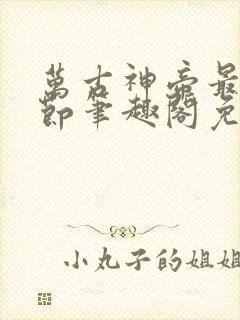 萬古神帝最
節筆趣閣免
小丸子的姐姐